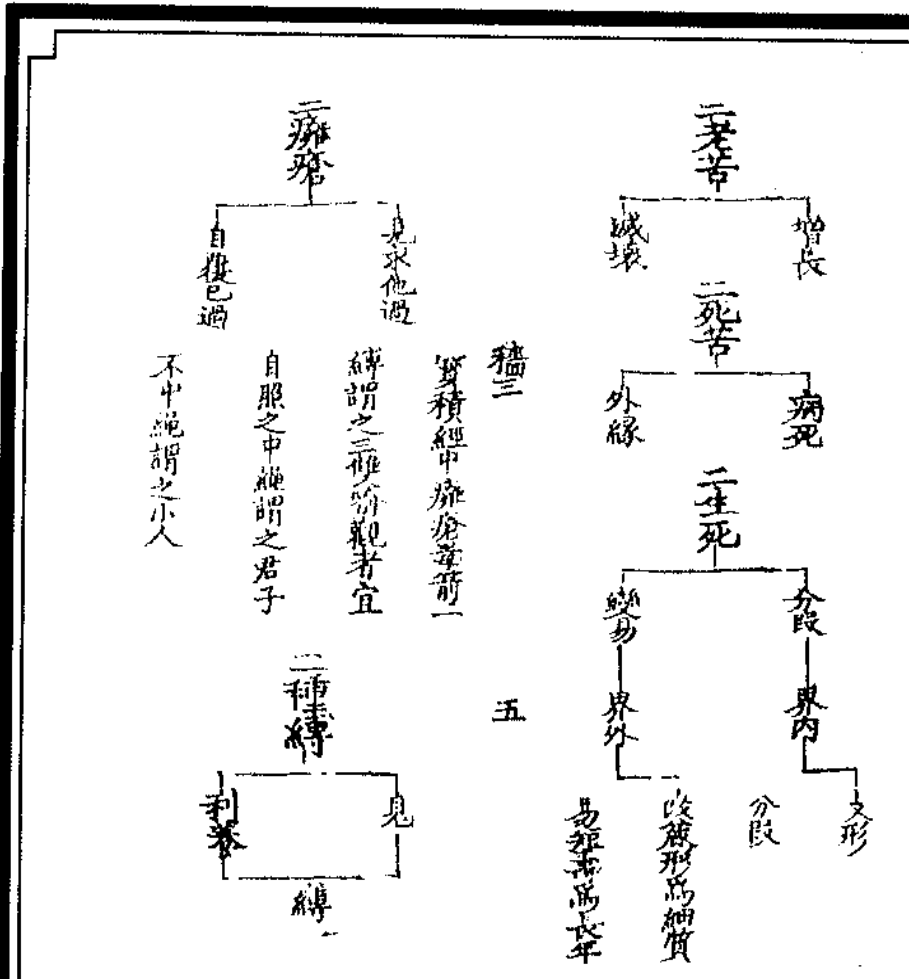 二老苦
增長
減壞
二死苦
病死
外緣
二生死
分段
界內
文形
分段
變易
界外
改麁形為細質
易短壽為長年
三
五
二癰瘡
見求他過
自覆己過
寶積經中癰瘡毒箭一
縛謂之三雙
觀者宜
自照之中繩謂之君子
不中繩謂之小人
二種縛
見
利養
縛